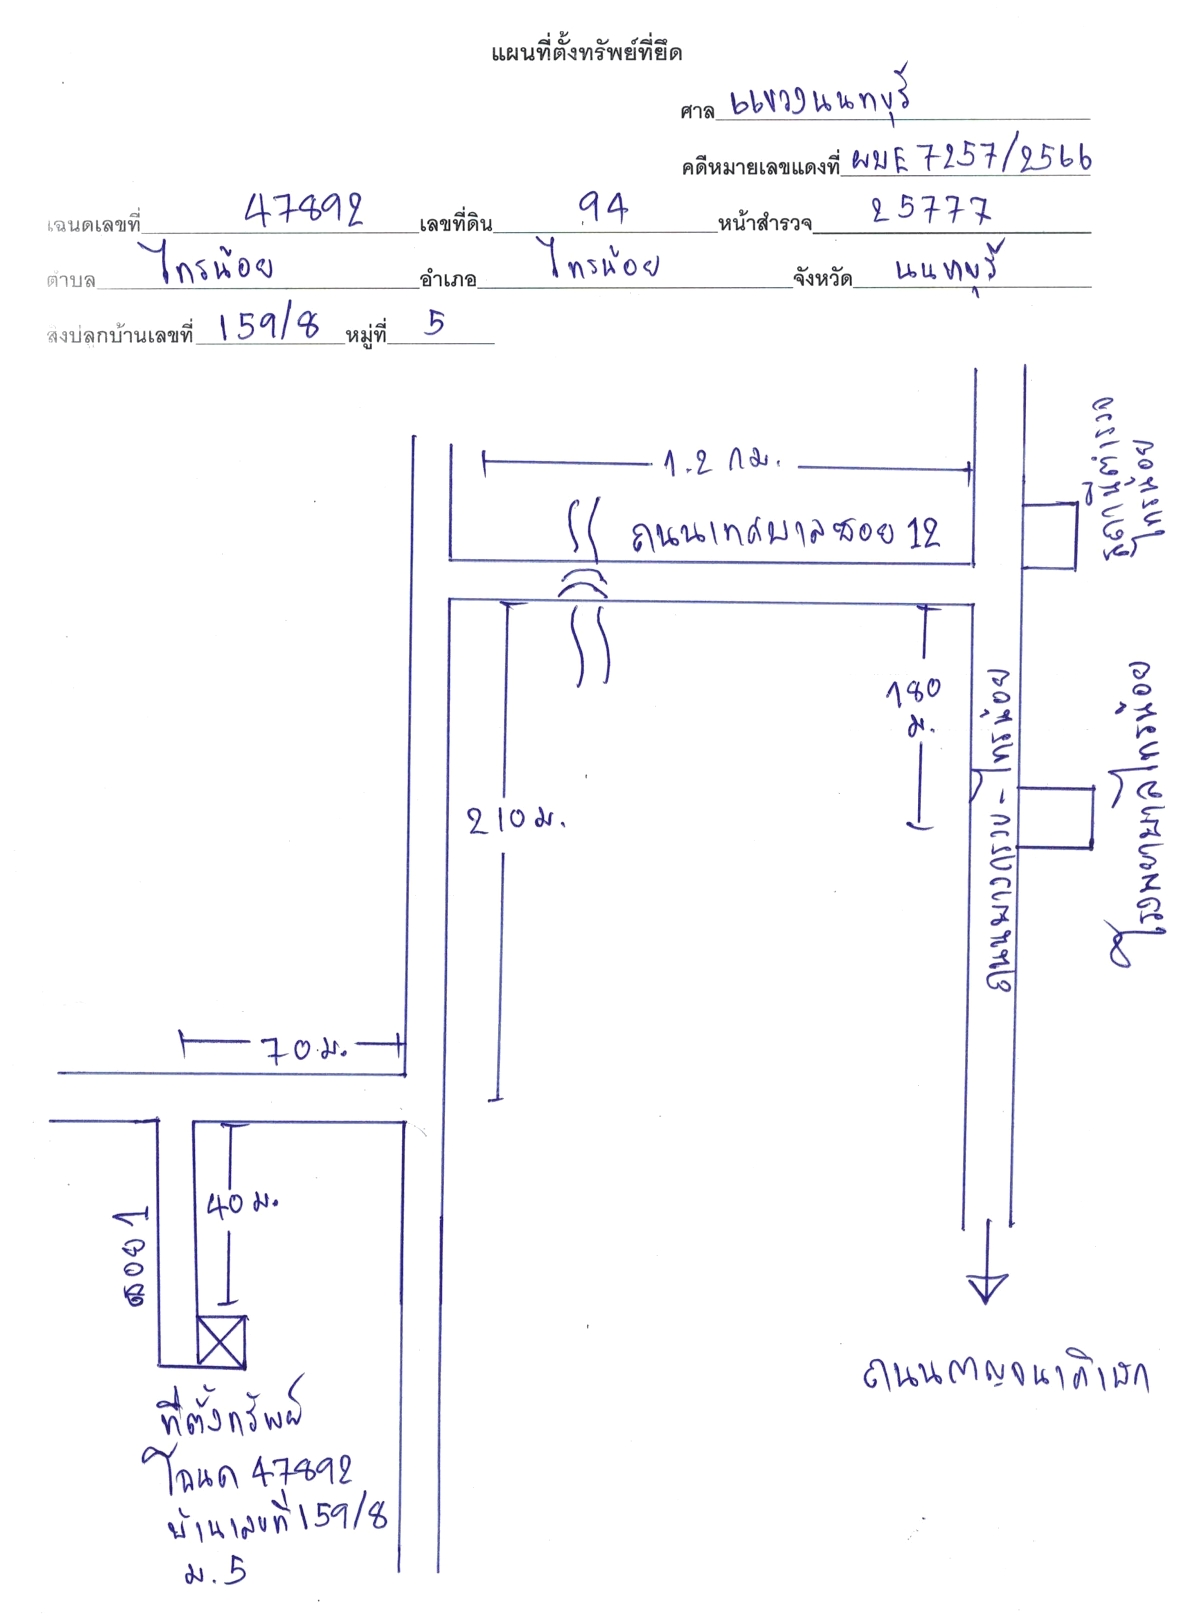 แผนที่ตั้งทรัพย์ที่ยึด
ศาล แขวงนนทบุรี
คดีหมายเลขแดงที่ ผบE 7257/2566
โฉนดเลขที่ 47892 เลขที่ดิน 94 หน้าสำรวจ 25777
ตำบล ไทรน้อย อำเภอ ไทรน้อย จังหวัด นนทบุรี
สิ่งปลูกบ้านเลขที่ 159/8 หมู่ที่ 5
1.2 กม.
ถนนเทศบาลซอย 12
ที่ว่าการอำเภอ
ไทรน้อย
180
ม.
210 ม.
ถนนบางกรวย-ไทรน้อย
โรงพยาบาลไทรน้อย
70 ม.
40 ม.
ซอย 1
ถนนกาญจนาภิเษก
ที่ตั้งทรัพย์
โฉนด 47892
บ้านเลขที่ 159/8
ม. 5